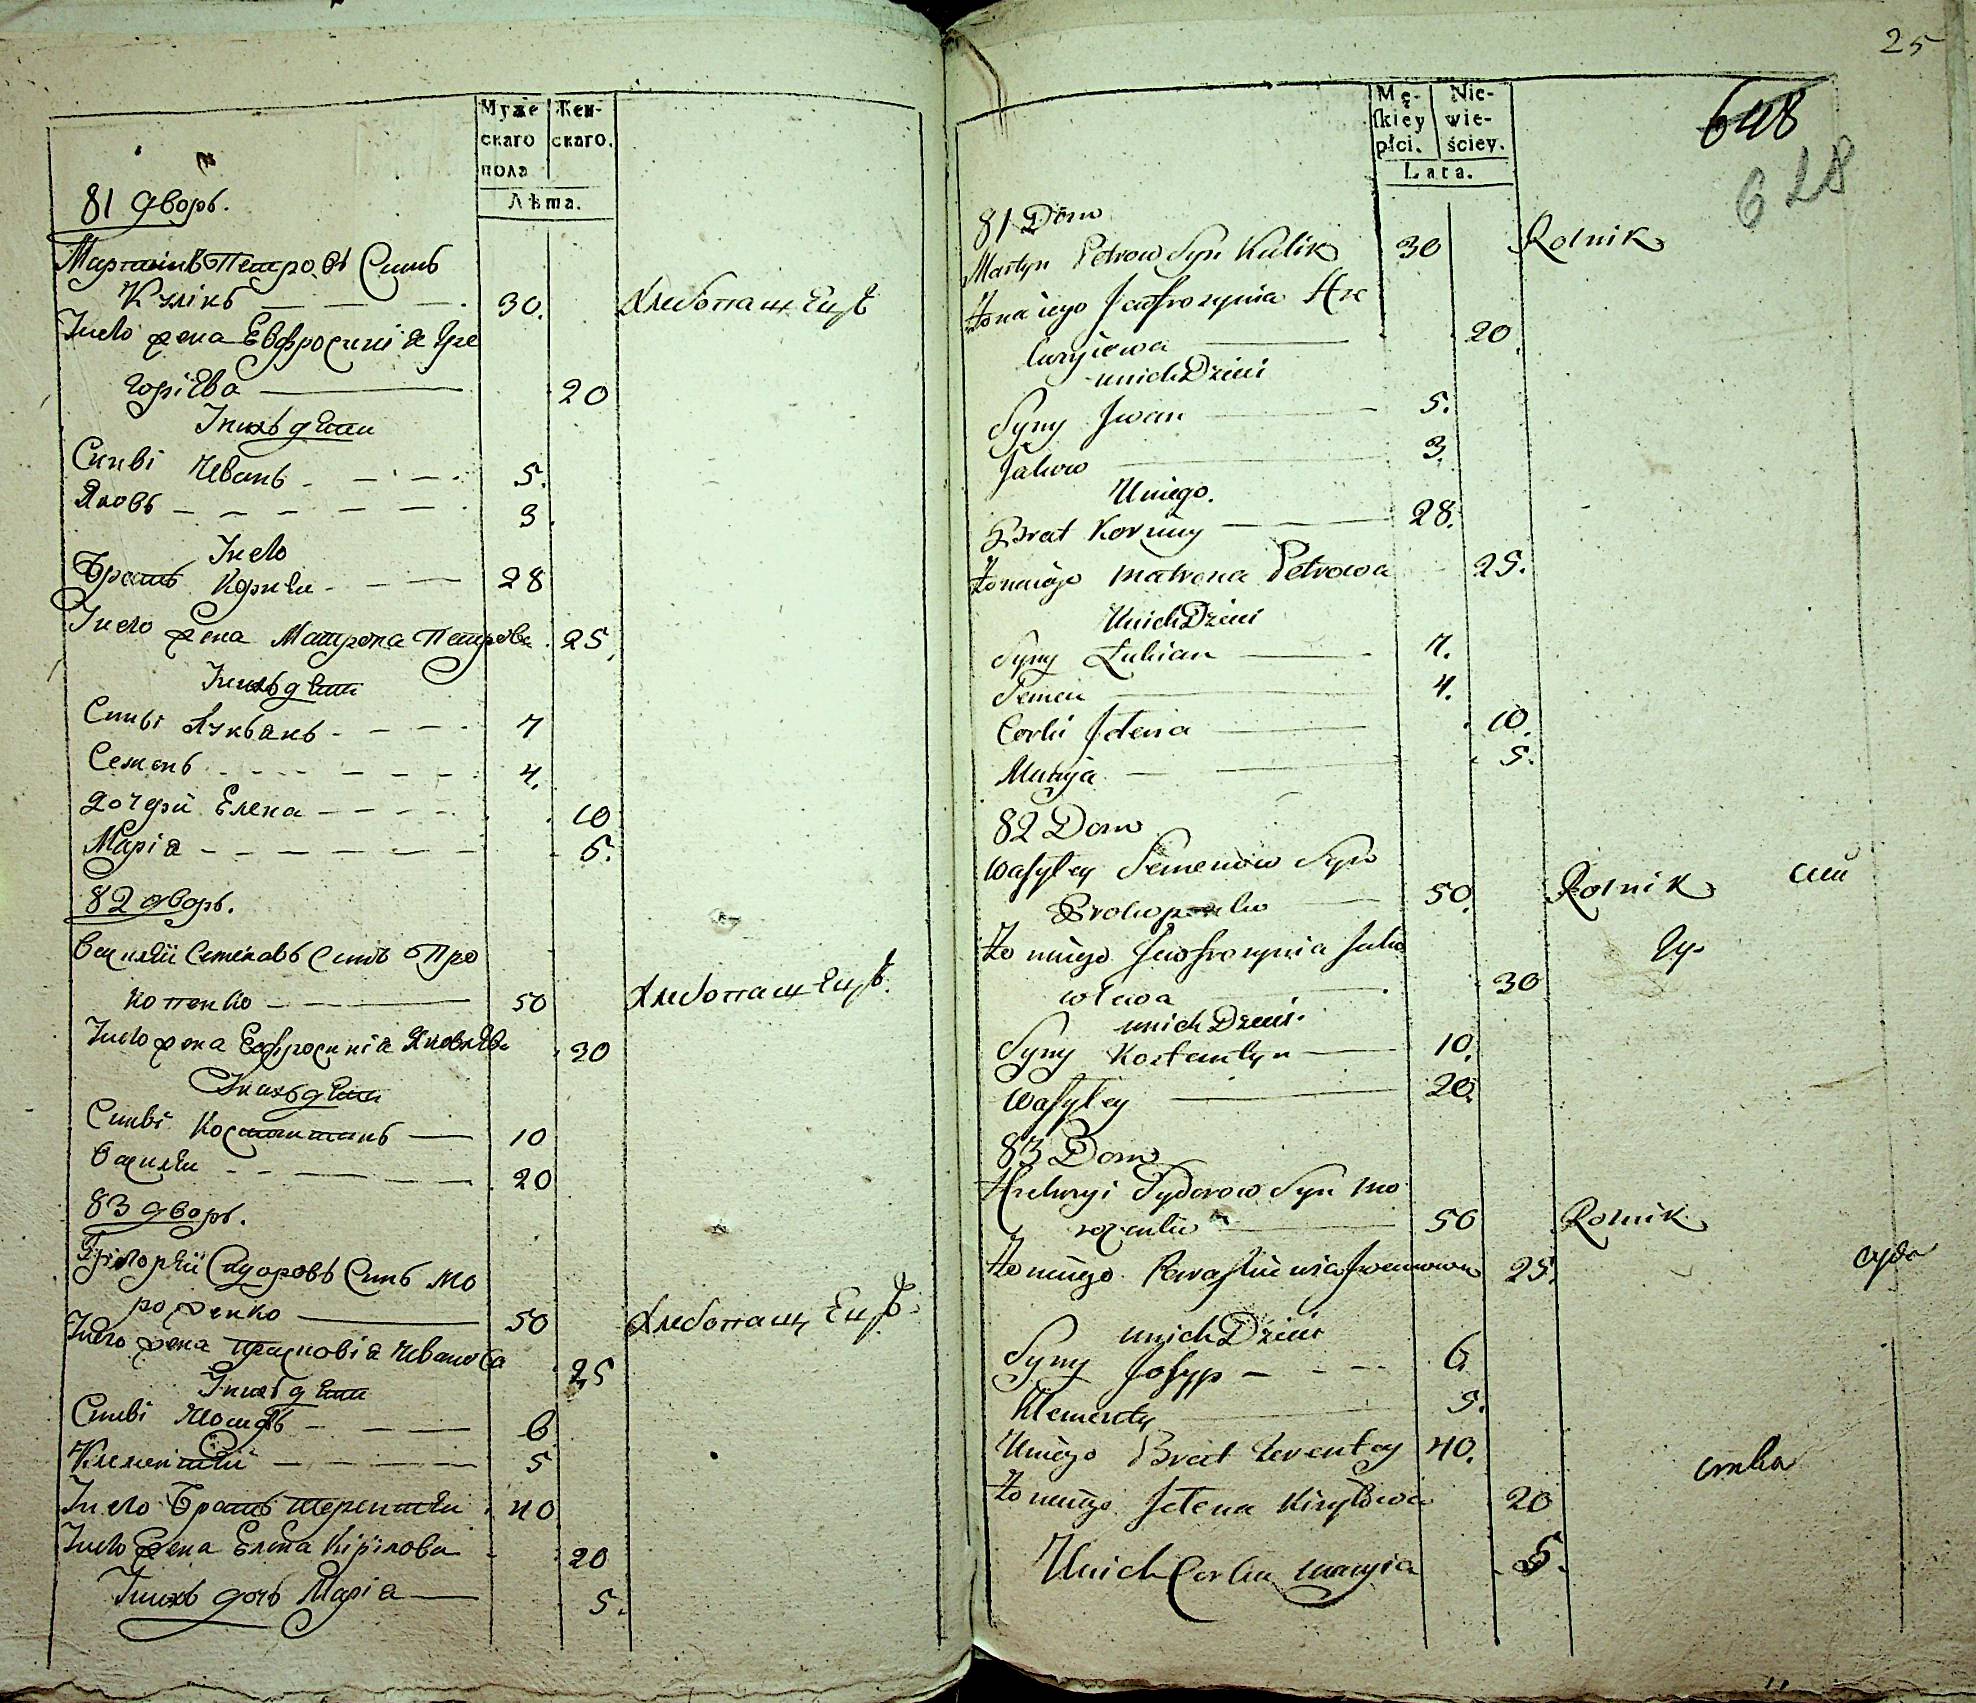 Муже
скаго
пола
Жен-
скаго.
Лѣта.
81 дворъ.
Мартинъ Петровъ Синъ
Кулікъ 30. Хлебопашецъ
У него жена Евфросинія Гре
горіева 20
У нихъ дети
Сини Иванъ 5.
Яковъ 3.
У него
Братъ Корней 28
У него жена Матрона Петрова 25
У нихъ дети
Сини Лукьянъ 7
Семенъ 4.
дочери Елена 10
Марія 5.
82 дворъ.
Василій Семеновъ Синъ Про
копенко 50 Хлебопашецъ.
У него жена Ефросинія Яковлева 30
У нихъ дети
Сини Костантинъ 10
Василей 20
83 дворъ.
Григорій Сидоровъ Синъ Мо
розенко 50 Хлебопашецъ.
У него жена Прасковія Иванова 25
У нихъ дети
Сини Иосипъ 6
Климентій 5
У него Братъ Терентей 40
У него жена Елена Кирілова 20
У нихъ дочь Марія 5.
25
648
628
Mę-
skiey
płci.
Nie-
wie-
ściey.
Lata.
81 Dom
Martyn Petrow Syn Kulik 30 Rolnik
Żona iego Jewfrozynia Hre
horyiewa 20
u nich Dzieci
Syny Jwan 5.
Jakow 3.
U niego.
Brat Korniey 28.
Żona iego Matrona Petrowa 25.
U nich Dzieci
Syny Łukian 7.
Semen 4.
Corki Jelena 10.
Maryja 5.
82 Dom
Wasyley Semenow Syn
Prokopenko 50. Rolnik
Żona iego Jewfrozynia Jako
wlewa 30
u nich Dzieci.
Syny Kostantyn 10.
Wasyley 20.
83 Dom
Hrehoryi Sydorow Syn Mo
rozenko 50 Rolnik
Żona iego Paraskiewia Jwanowa 25.
u nich Dzieci
Syny Josyp 6.
Klementy 5.
U niego Brat Terentey 40.
Żona iego Jelena Kiryłowa 20
U nich Corka Maryia 5.